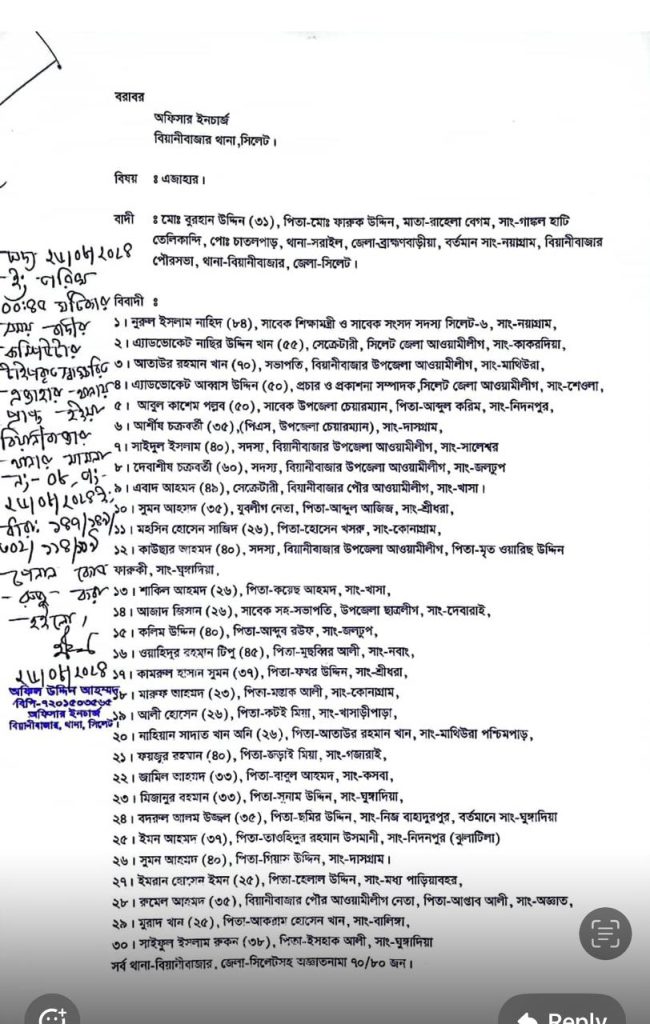 বরাবর
অফিসার ইনচার্জ
বিয়ানীবাজার থানা,সিলেট।
বিষয় ঃ এজাহার।
বাদী ঃ মোঃ বুরহান উদ্দিন (৩১), পিতা-মোঃ ফারুক উদ্দিন, মাতা-রাহেলা বেগম, সাং-গাঙ্কল হাটি
তেলিকান্দি, পোঃ চাতলপাড়, থানা-সরাইল, জেলা-ব্রাহ্মণবাড়ীয়া, বর্তমান সাং-নয়াগ্রাম, বিয়ানীবাজার
পৌরসভা, থানা-বিয়ানীবাজার, জেলা-সিলেট।
বিবাদী ঃ
১। নুরুল ইসলাম নাহিদ (৮৪), সাবেক শিক্ষামন্ত্রী ও সাবেক সংসদ সদস্য সিলেট-৬, সাং-নয়াগ্রাম,
২। এ্যাডভোকেট নাছির উদ্দিন খান (৫৫), সেক্রেটারী, সিলেট জেলা আওয়ামীলীগ, সাং-কাকরদিয়া,
৩। আতাউর রহমান খান (৭০), সভাপতি, বিয়ানীবাজার উপজেলা আওয়ামীলীগ, সাং-মাথিউরা,
৪। এ্যাডভোকেট আব্বাস উদ্দিন (৫০), প্রচার ও প্রকাশনা সম্পাদক,সিলেট জেলা আওয়ামীলীগ, সাং-শেওলা,
৫। আবুল কাশেম পল্লব (৫০), সাবেক উপজেলা চেয়ারম্যান, পিতা-আব্দুল করিম, সাং-নিদনপুর,
৬। আর্শীষ চক্রবর্তী (৩৫),(পিএস, উপজেলা চেয়ারম্যান), সাং-দাসগ্রাম,
৭। সাইদুল ইসলাম (৪০), সদস্য, বিয়ানীবাজার উপজেলা আওয়ামীলীগ, সাং-সালেশ্বর
৮। দেবাশীষ চক্রবর্তী (৬০), সদস্য, বিয়ানীবাজার উপজেলা আওয়ামীলীগ, সাং-জলঢুপ
৯। এবাদ আহমদ (৪৯), সেক্রেটারী, বিয়ানীবাজার পৌর আওয়ামীলীগ, সাং-খাসা।
১০। সুমন আহমদ (৩৫), যুবলীগ নেতা, পিতা-আব্দুল আজিজ, সাং-শ্রীধরা,
১১। মহসিন হোসেন সাজিদ (২৬), পিতা-হোসেন খসরু, সাং-কোনাগ্রাম,
১২। কাউছার আহমদ (৪০), সদস্য, বিয়ানীবাজার উপজেলা আওয়ামীলীগ, পিতা-মৃত ওয়ারিছ উদ্দিন
ফারুকী, সাং-ঘুঙ্গাদিয়া,
১৩। শাকিল আহমদ (২৬), পিতা-কয়েছ আহমদ, সাং-খাসা,
১৪। আজাদ জিসান (২৬), সাবেক সহ-সভাপতি, উপজেলা ছাত্রলীগ, সাং-দেবারাই,
১৫। কলিম উদ্দিন (৪০), পিতা-আব্দুর রউফ, সাং-জলঢুপ,
১৬। ওয়াহিদুর রহমান টিপু (৪৫), পিতা-মুছব্বির আলী, সাং-নবাং,
১৭। কামরুল হাসান সুমন (৩৭), পিতা-ফখর উদ্দিন, সাং-শ্রীধরা,
১৮। মারুফ আহমদ (২৩), পিতা-মস্তাক আলী, সাং-কোনাগ্রাম,
১৯। আলী হোসেন (২৬), পিতা-কটই মিয়া, সাং-খাসাড়ীপাড়া,
২০। নাহিয়ান সাদাত খান অনি (২৬), পিতা-আতাউর রহমান খান, সাং-মাথিউরা পশ্চিমপাড়,
২১। ফয়জুর রহমান (৪০), পিতা-জড়াই মিয়া, সাং-গজারাই,
২২। জামিল আহমদ (৩৩), পিতা-বাবুল আহমদ, সাং-কসবা,
২৩। মিজানুর রহমান (৩৩), পিতা-সুনাম উদ্দিন, সাং-ঘুঙ্গাদিয়া,
২৪। বদরুল আলম উজ্জল (৩৫), পিতা-ছমির উদ্দিন, সাং-নিজ বাহাদুরপুর, বর্তমানে সাং-ঘুঙ্গাদিয়া
২৫। ইমন আহমদ (৩৭), পিতা-তাওহিদুর রহমান উসমানী, সাং-নিদনপুর (ঝুলাটিলা)
২৬। সুমন আহমদ (৪০), পিতা-গিয়াস উদ্দিন, সাং-দাসগ্রাম।
২৭। ইমরান হোসেন ইমন (২৫), পিতা-হেলাল উদ্দিন, সাং-মধ্য পাড়িয়াবহর,
২৮। রুমেল আহমদ (৩৫), বিয়ানীবাজার পৌর আওয়ামীলীগ নেতা, পিতা-আপ্তাব আলী, সাং-অজ্ঞাত,
২৯। মুরাদ খান (২৫), পিতা-আকরাম হোসেন খান, সাং-বালিঙ্গা,
৩০। সাইফুল ইসলাম রুকন (৩৮), পিতা-ইসহাক আলী, সাং-ঘুঙ্গাদিয়া
সর্ব থানা-বিয়ানীবাজার, জেলা-সিলেটসহ অজ্ঞাতনামা ৭০/৮০ জন।
২৮/০৮/২০২৪
অকিল উদ্দিন আহম্মদ
বিপি-৭২০১৫০৩৫৬৫
অফিসার ইনচার্জ
বিয়ানীবাজার, থানা, সিলেট।
Reply